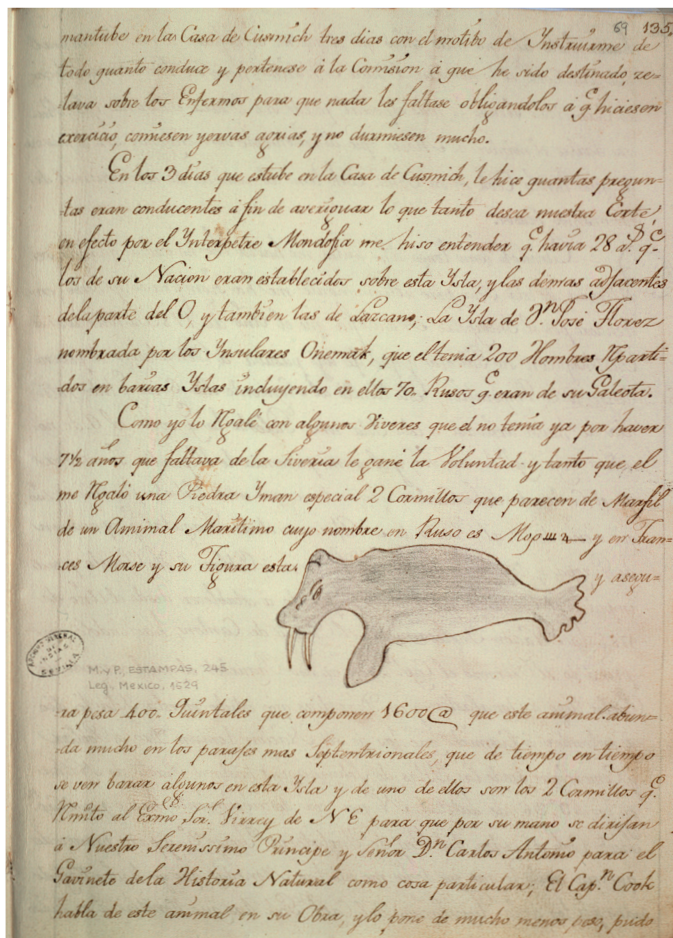 69 135
mantube en la Casa de Cusmich tres dias con el motibo de Instruirme de
todo quanto conduce y pertenese à la Comision à que he sido destinado, ze-
lava sobre los Enfermos para que nada les faltase obligandolos à q.e hiciesen
exercicio, comiesen yervas agrias, y no durmiesen mucho.
En los 3 dias que estube en la Casa de Cusmich, le hice quantas pregun-
tas eran conducentes à fin de averiguar lo que tanto desea nuestra Corte,
en efecto por el Ynterpetre Mondofia me hiso entender q.e havia 28 a.s q.e
los de su Nacion eran establecidos sobre esta Ysla, y las demas adjacentes
de la parte del O, y tambien las de Lazcano; La Ysla de D.n José Florez
nombrada por los Ynsulares Onemak, que el tenia 200 Hombres Rparti-
dos en barias Yslas incluyendo en ellos 70. Rusos q.e eran de su Galeota.
Como yo lo Rgalé con algunos Viveres que el no tenia ya por haver
7½ años que faltava de la Siveria le gané la Voluntad y tanto que el
me Rgaló una Piedra Yman especial 2 Cormillos que parecen de Marfil
de un Amimal Maritimo cuyo nombre en Ruso es y en Fran-
ces Morse y su Figura esta y asegu-
ARCHIVO GENERAL DE INDIAS SEVILLA
M. y P. ESTAMPAS, 245
Leg. Mexico, 1529
ra pesa 400. Quintales que componen 1600@ que este animal abun-
da mucho en los parajes mas Septentrionales, que de tiempo en tiempo
se ven barar algunos en esta Ysla y de uno de ellos son los 2 Cormillos q.e
Rmito al Exmo Sor. Virrey de NE para que por su mano se dirijan
à Nuestro Serenissimo Principe y Señor D.n Carlos Antonio para el
Gavinete de la Historia Natural como cosa particular; El Cap.n Cook
habla de este animal en su Obra, y lo pone de mucho menos peso, pudo